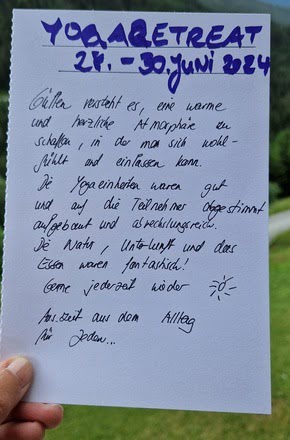 YOGARETREAT
28. – 30. Juni 2024
Gülten versteht es, eine warme
und herzliche Atmosphäre zu
schaffen, in der man sich wohl-
fühlt und einlassen kann.
Die Yogaeinheiten waren gut
und auf die Teilnehmer abgestimmt
aufgebaut und abwechslungsreich.
Die Natur, Unterkunft und das
Essen waren fantastisch!
Gerne jederzeit wieder
Auszeit aus dem Alltag
für Jeden...